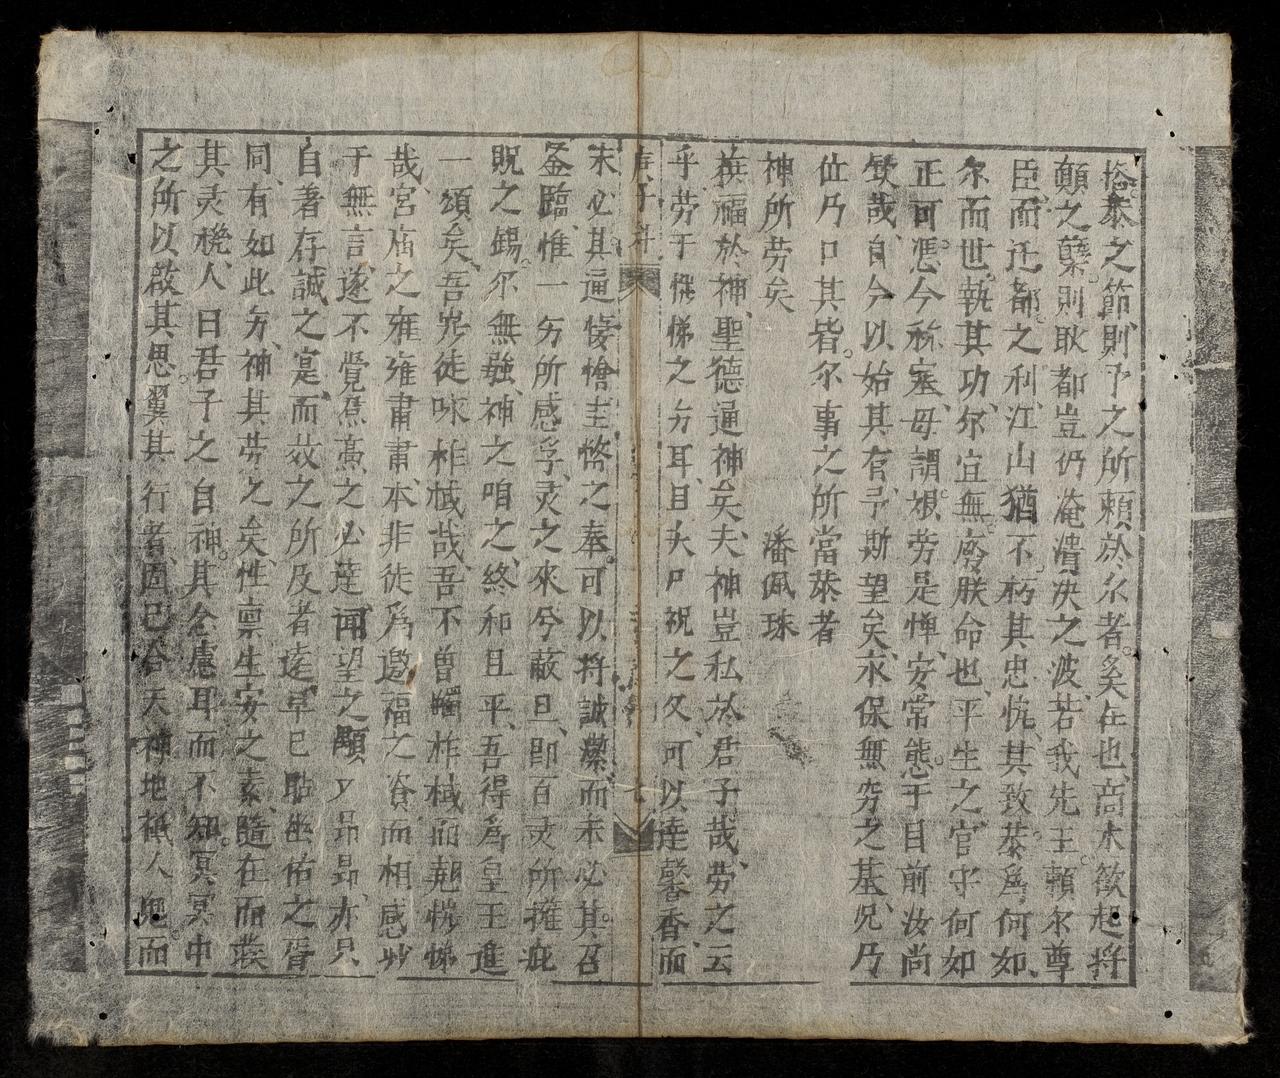 恭之節、則予之所賴於尔者。奚在也、高木欲起將
顛之孽、則耿都豈仍淹潰決之波、若我先王。賴尔尊
臣、而迁都。之利、江山猶不。朽其忠忱、其致。恭為何如、
尔而世、執其功、尔宜無。廢朕命也、平生之官守何如
正可。憑今称塞、毋謂。艰劳是惮、安常態。于目前汝尚
欽哉、自今以始其有予斯望矣、永保無穷之基、况乃
位乃口其皆。尔事之所當恭者
神所劳矣 潘佩珠
撫福於神、聖德通神矣夫、神豈私於君子哉、劳之云
乎、劳于愷悌之方耳、且夫尸祝之久、可以達馨香、而
未必其。通悽愴圭幣之奉。可以将誠潔、而未必其。召
鉴臨、惟一方所感孚、灵之來兮蔽旦、即百灵所擁庇
貺之錫。尔無彊、神之咱之、終和且平、吾得為皇王進
一頌矣、吾岂徒咏柞棫哉、吾不曾睹柞棫而想愷悌
哉、宮庙之雍雍肃肃、本非徒為邀福之資而相感妙
于無言、遂不覺焄蒿之必達闻望之顒ㄚ昂昂、亦只
自著存誠之寔、而效之所及者遠、早已黙坐佑之胥
同、有如此方、神其劳之矣、性禀生安之素、隨在而裝
其灵機、人曰君子之自神。其念慮耳而不知。冥冥中
之所以啟其思。翼其行者、固已合天神地祗人鬼。而